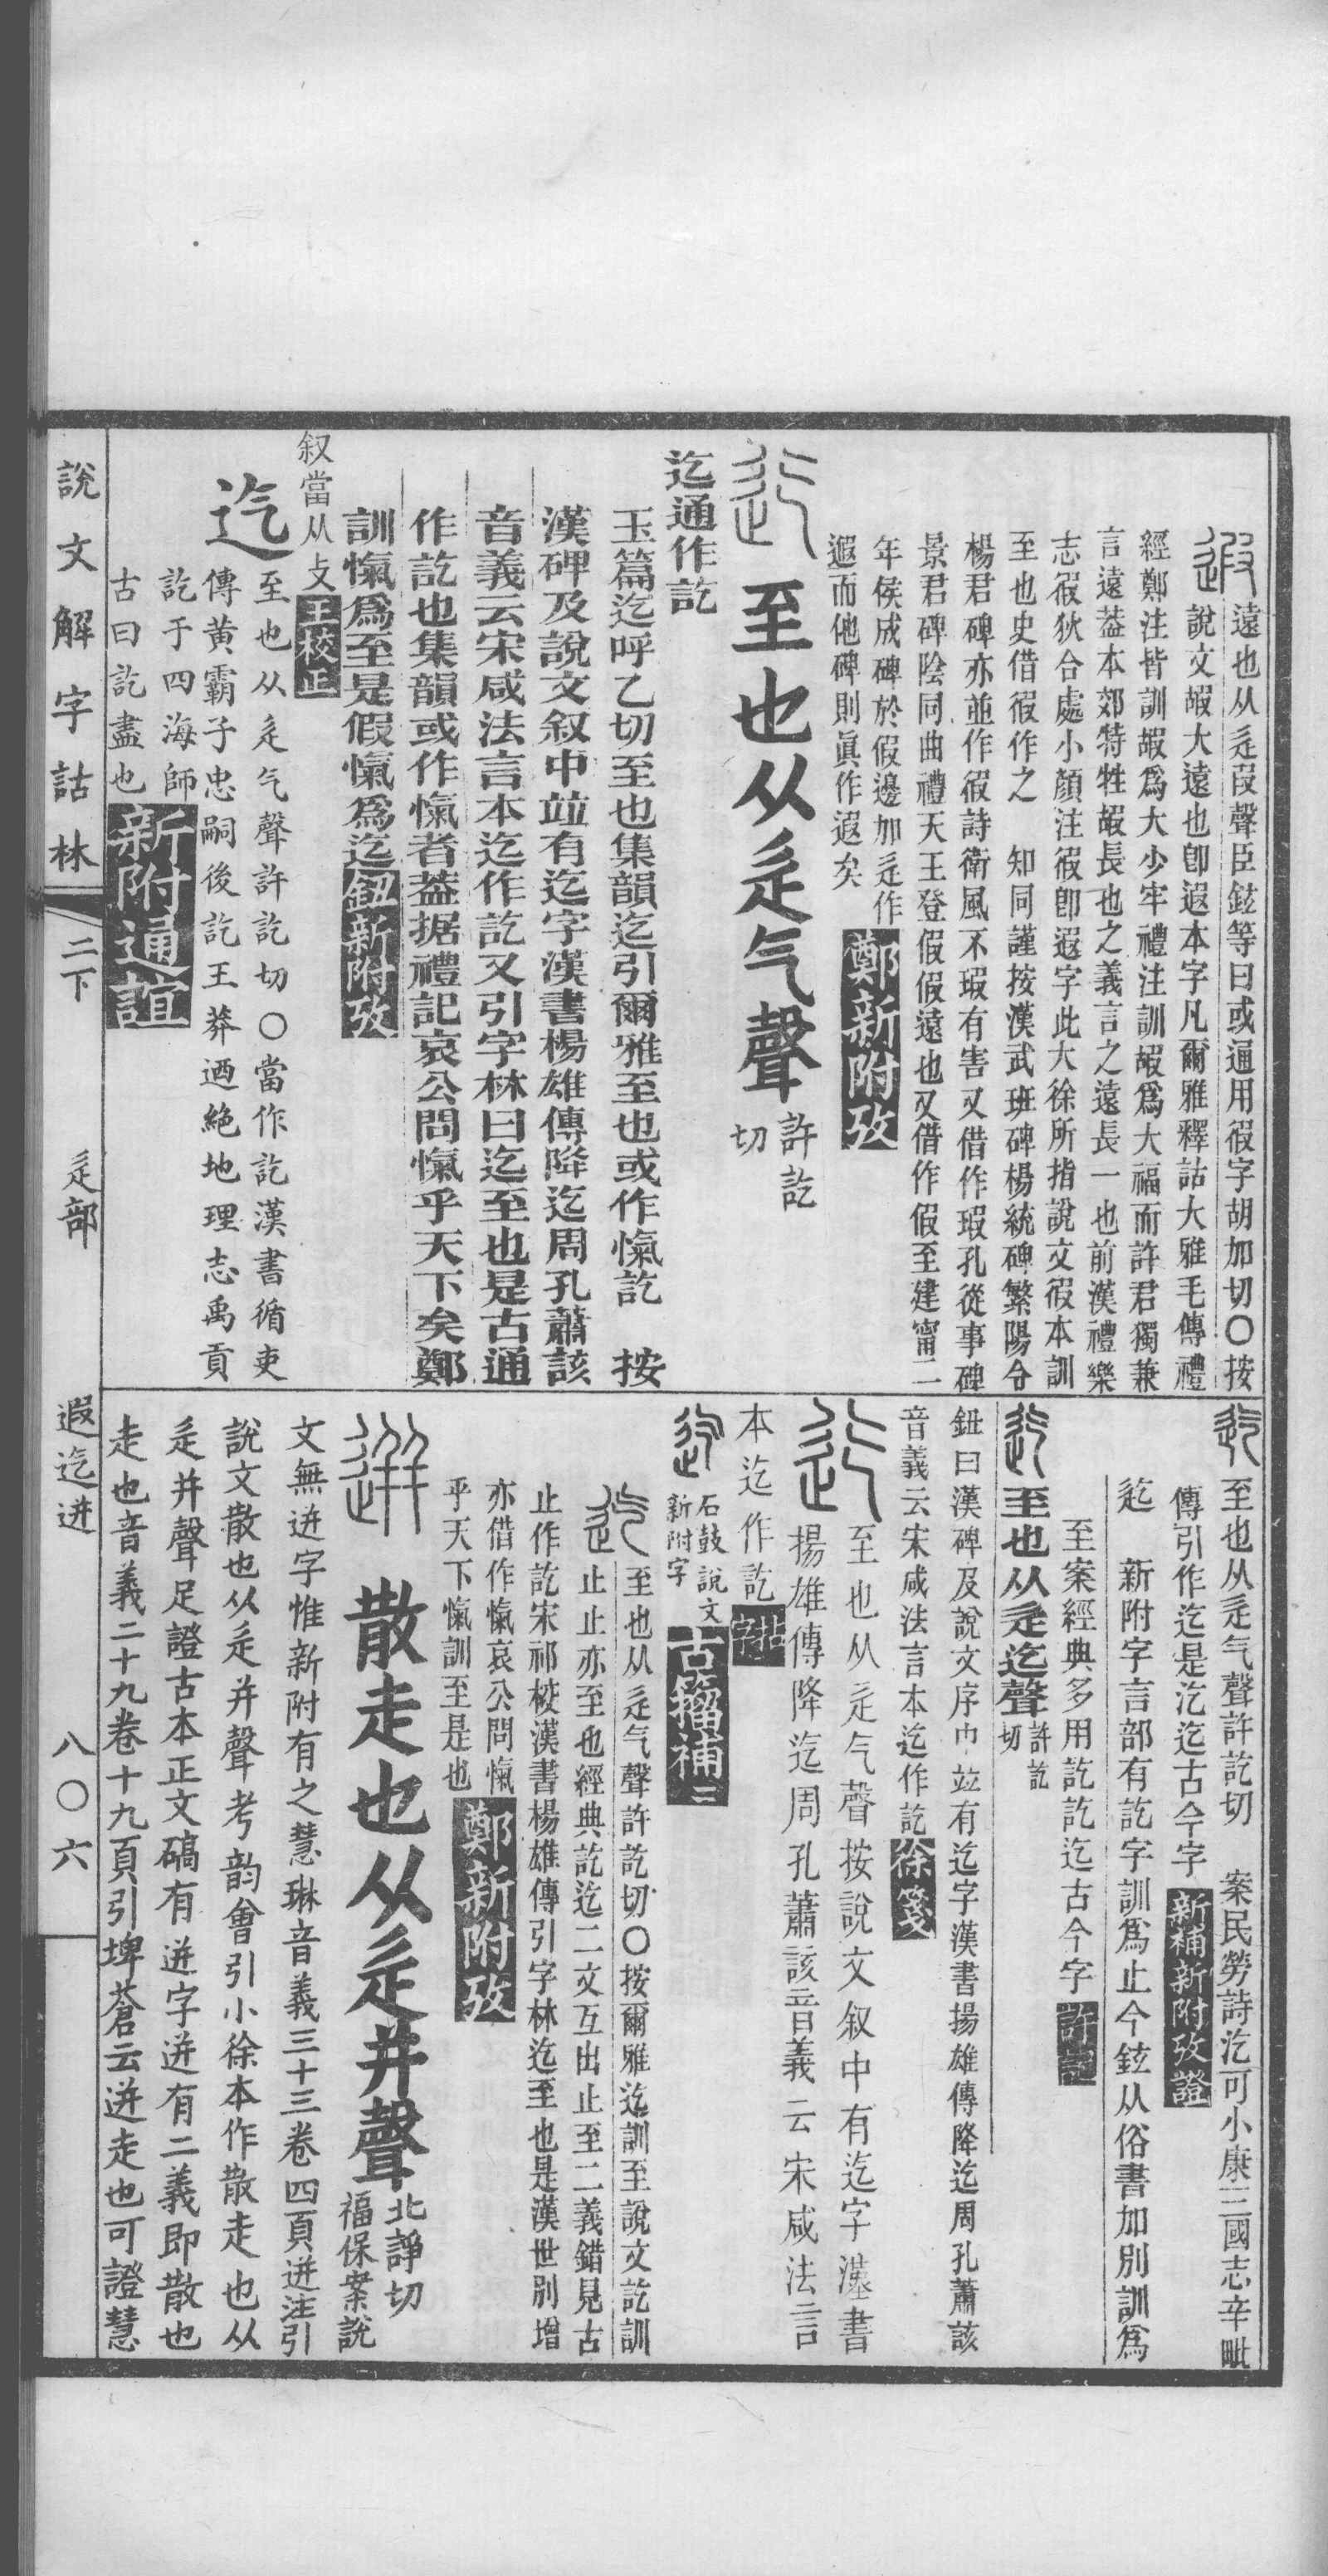 遐遠也从辵叚聲臣鉉等曰或通用徦字胡加切〇按
說文嘏大遠也卽遐本字凡爾雅釋詁大雅毛傳禮
經鄭注皆訓嘏爲大少牢禮注訓嘏爲大福而許君獨兼
言遠葢本郊特牲嘏長也之義言之遠長一也前漢禮樂
志徦狄合處小顏注徦卽遐字此大徐所指說文徦本訓
至也史借徦作之　知同謹按漢武班碑楊統碑繁陽令
楊君碑亦並作徦詩衛風不瑕有害又借作瑕孔從事碑
景君碑陰同曲禮天王登假假遠也又借作假至建甯二
年侯成碑於假邊加辵作
遐而他碑則眞作遐矣
鄭新附攷
迄至也从辵气聲許訖
切
迄通作訖
玉篇迄呼乙切至也集韻迄引爾雅至也或作愾訖　按
漢碑及說文叙中竝有迄字漢書楊雄傳降迄周孔蕭該
音義云宋咸法言本迄作訖又引字林曰迄至也是古通
作訖也集韻或作愾者葢据禮記哀公問愾乎天下矣鄭
訓愾爲至是假愾爲迄鈕新附攷
叙當从攴王校正
迄至也从辵气聲許訖切〇當作訖漢書循吏
傳黃霸子忠嗣後訖王莽迺絶地理志禹貢
訖于四海師
古曰訖盡也新附通誼
迄至也从辵气聲許訖切　案民勞詩汔可小康三國志辛毗
傳引作迄是汔迄古今字新補新附攷證
迄　新附字言部有訖字訓爲止今鉉从俗書加別訓爲
至案經典多用訖訖迄古今字許記
迄至也从辵迄聲許訖
切
鈕曰漢碑及說文序巾竝有迄字漢書揚雄傳降迄周孔蕭該
音義云宋咸法言本迄作訖徐箋
迄至也从辵气聲按說文叙中有迄字漢書
揚雄傳降迄周孔蕭該音義云宋咸法言
本迄作訖
迄石鼓說文
新附字古籀補二
迄至也从辵气聲許訖切〇按爾雅迄訓至說文訖訓
止止亦至也經典訖迄二文互出止至二義錯見古
止作訖宋祁校漢書楊雄傳引字林迄至也是漢世別增
亦借作愾哀公問愾
乎天下愾訓至是也鄭新附攷
逬散走也从辵并聲北諍切
福保案說
文無逬字惟新附有之慧琳音義三十三卷四頁逬注引
說文散也从辵并聲考韵會引小徐本作散走也从
辵并聲足證古本正文碻有逬字逬有二義即散也
走也音義二十九卷十九頁引埤蒼云逬走也可證慧
說文解字詁林
二下
辵部
遐迄逬
八〇六